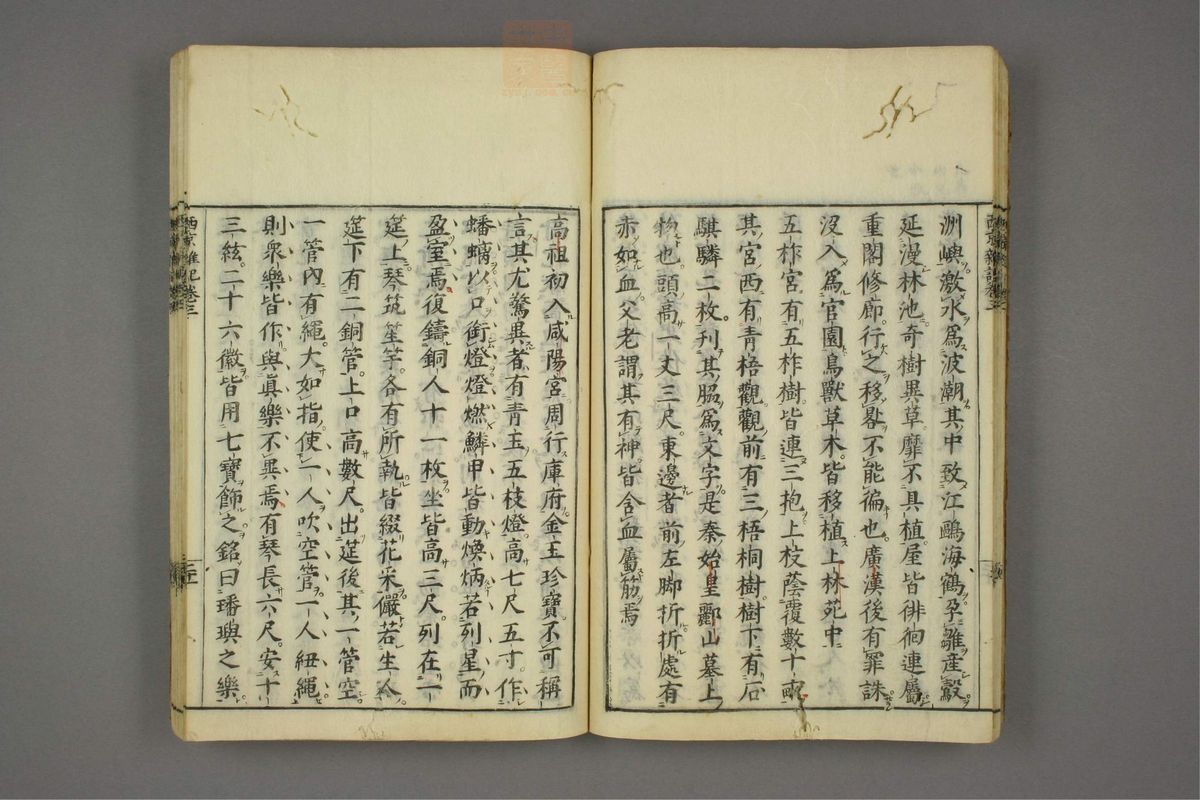 洲嶼激水爲波潮其中致江鷗海鶴孕雛産鷇
延漫林池奇樹異草靡不具植屋皆徘徊連屬
重閣修廊行之移晷不能徧也廣漢後有罪誅
沒入爲官園鳥獸草木皆移植上林苑中
五柞宮有五柞樹皆連三抱上枝蔭覆數十畝
其宮西有青梧觀觀前有三梧桐樹樹下有石
騏驎二枚刋其脇爲文字是秦始皇酈山墓上
物也頭高一丈三尺東邊者前左脚折折處有
赤如血父老謂其有神皆含血屬筋焉
高祖初入咸陽宮周行庫府金玉珍寶不可稱
言其尤驚異者有青玉五枝燈高七尺五寸作
蟠螭以口銜燈燈燃鱗甲皆動煥炳若列星而
盈室焉復鑄銅人十一枚坐皆高三尺列在一
筵上琴筑笙竽各有所執皆綴花采儼若生人
筵下有二銅管上口高數尺出筵後其一管空
一管內有繩大如指使一人吹空管一人紐繩
則衆樂皆作與眞樂不異焉有琴長六尺安十
三絃二十六徽皆用七寶飾之銘曰璠璵之樂
西京雜記卷三